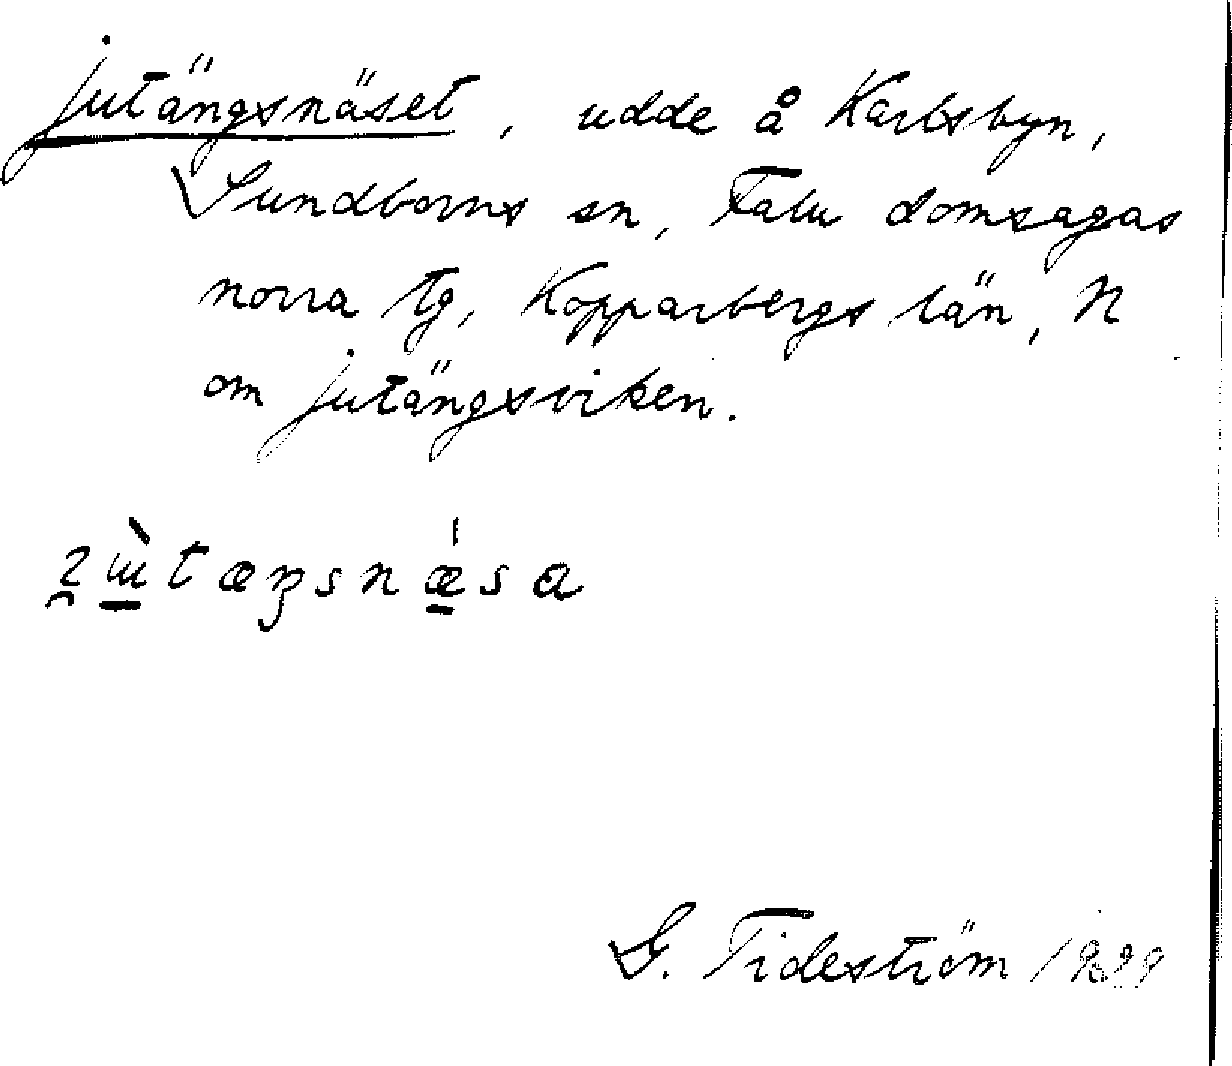 jutängsnäset, udde å Karlsbyn,
Sundborns sn, Falu domsagas
norra tg, Kopparbergs län, N
om jutängsviken.
G. Tideström